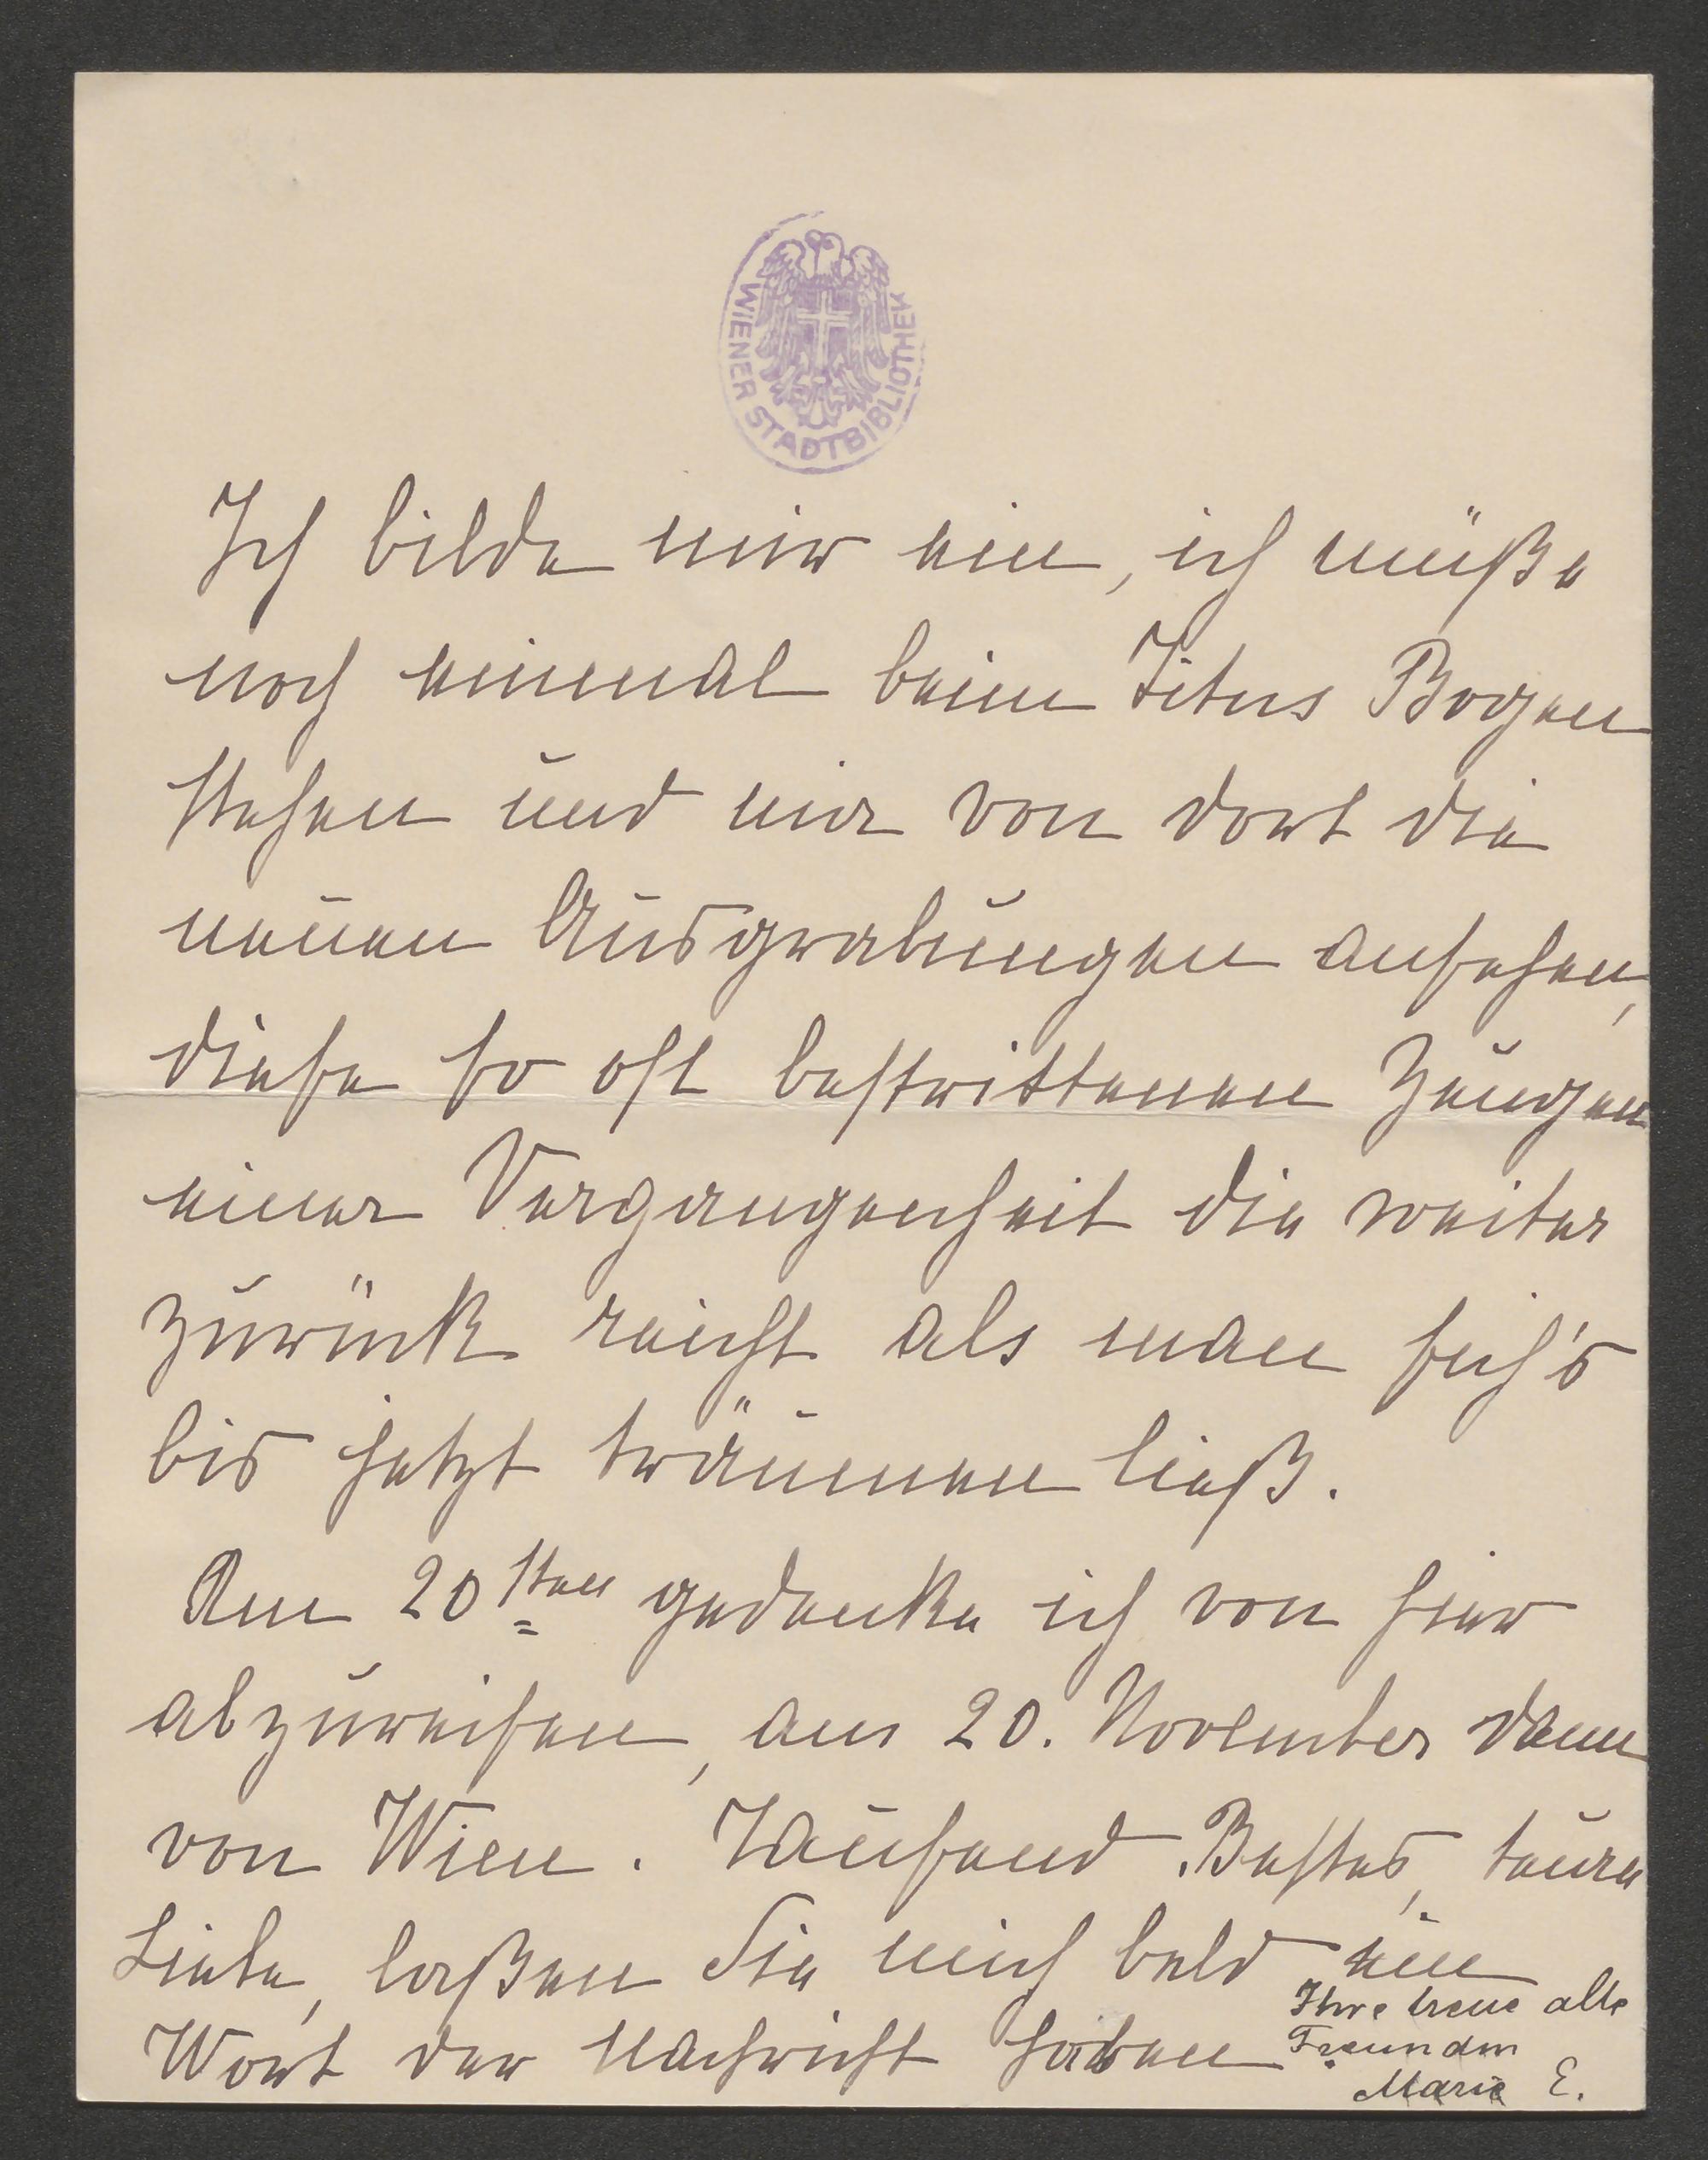 WIENER STADTBIBLIOTHEK
Ich bilde mir ein, ich müße
noch einmal beim Titus Bogen
stehen und mir von dort die
neuen Ausgrabungen ansehen,
diese so oft bestrittenen Zeugen
einer Vergangenheit die weiter
zurück reicht als man sich's
bis jetzt träumen ließ.
Am 20sten gedenke ich von hier
abzureisen, am 20. November dann
von Wien. Tausend Bestes, teure
Liebe, laßen Sie mich bald ein
Wort der Nachricht haben
Ihre treue alte
Freundin
Marie E.